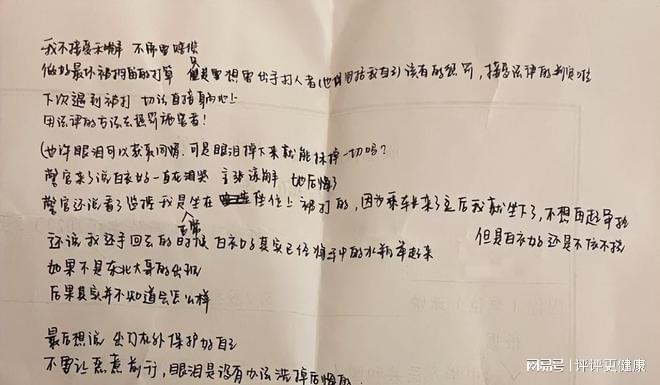 我不接受和解 不需要赔偿
做好最坏被拘留的打算 但是要想要出手打人者(也包括我自己)该有的惩罚，接受法律的判定吧
下次遇到被打 切记直接躺地上
用法律的方法去惩罚施害者！
(也许眼泪可以获取同情.可是眼泪掉下来就能抹掉一切吗？
警官来了说白衣女一直在泪哭 主张谅解 她后悔了
警官还说看了监控 我是坐在座位上被打的，因为乘车长来了之后我就坐下了，不想再起争执
但是白衣女还是不依不挠
还说我正常还手回去的时候 白衣女其实已经将手中的水瓶举起来
如果不是东北大哥的出现
后果其实并不知道会怎么样
最后想说 出门在外保护好自己
不要让恶意前行，眼泪是没有办法洗掉后悔的.
网易号 | 评评更健康